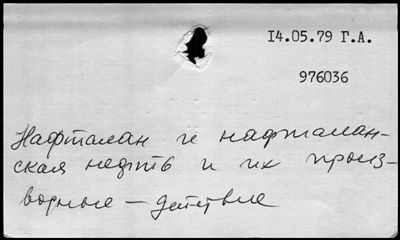 14.05.79 Г.А.
976036
Нафталан и нафталан-
ская нефть и их произ-
водные — действие